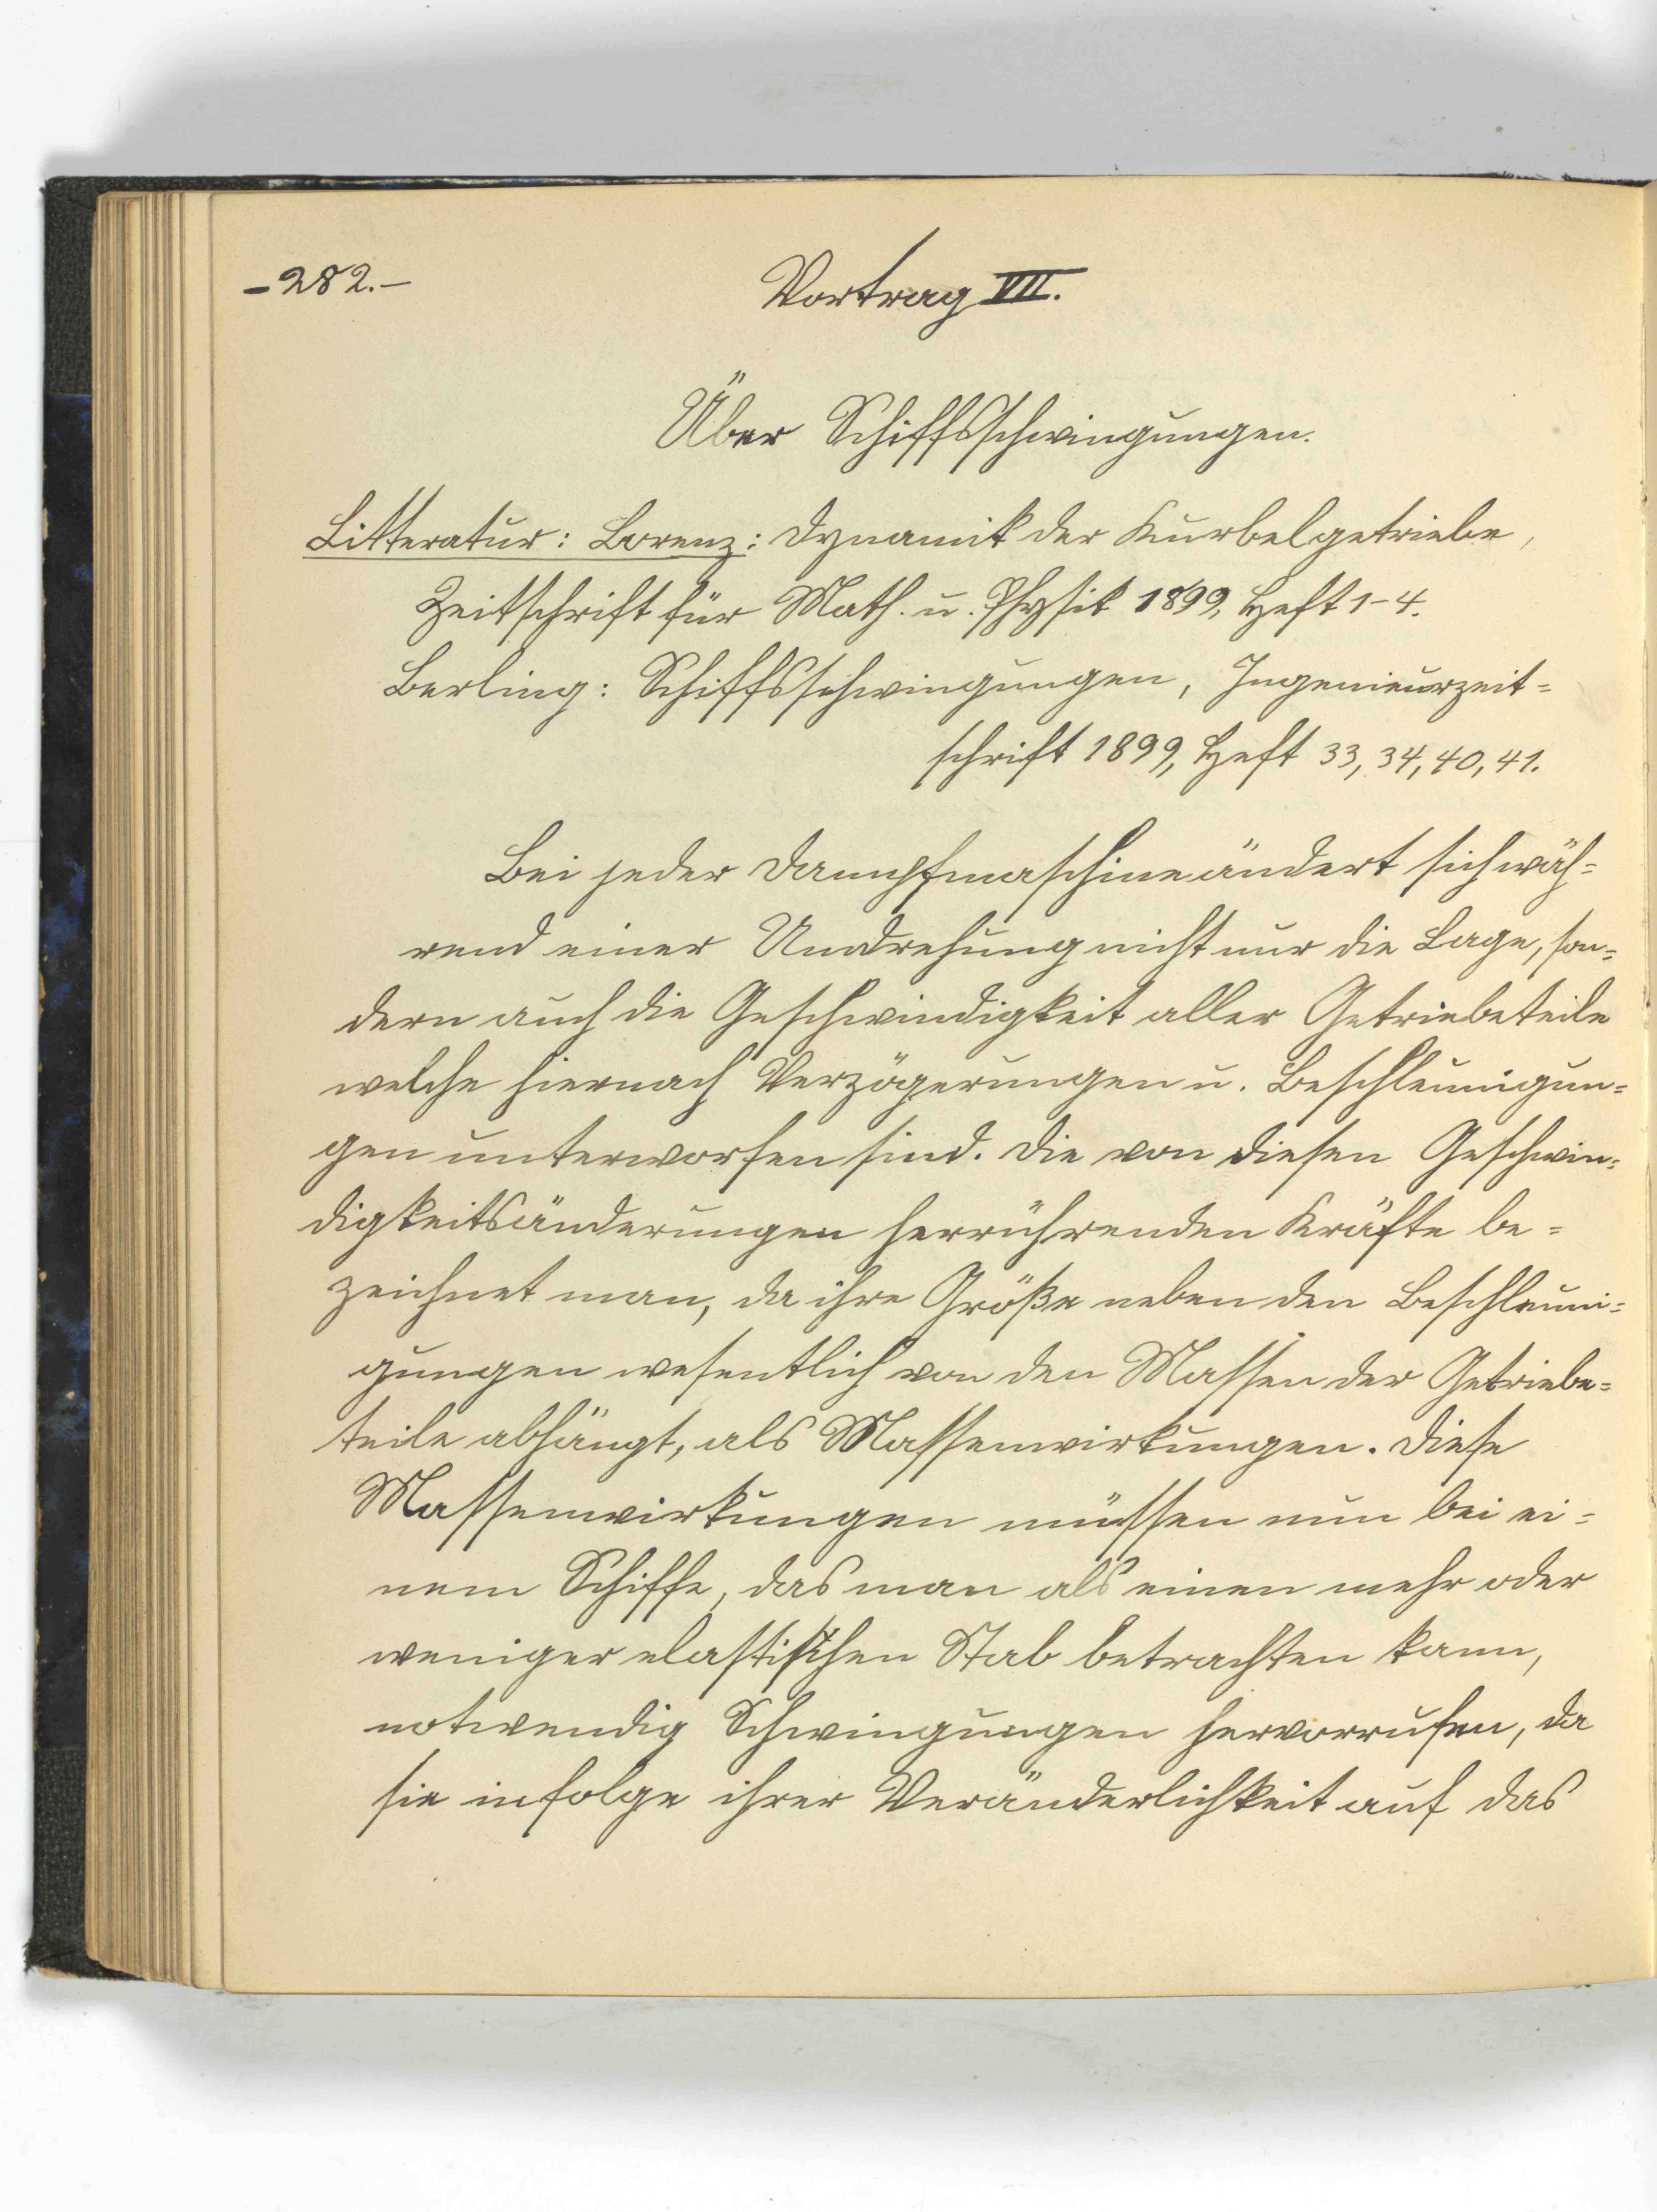 -282.-
Vortrag VII.
Über Schiffsschwingungen.
Litteratur: Lorenz: Dynamik der Kurbelgetriebe,
Zeitschrift für Math. u. Physik 1899, Heft 1-4.
Berling: Schiffsschwingungen, Ingenieurzeit=
schrift 1899, Heft 33, 34, 40, 41.
Bei jeder Dampfmaschine ändert sich wäh=
rend einer Umdrehung nicht nur die Lage, son=
dern auch die Geschwindigkeit aller Getriebeteile
welche hiernach Verzögerungen u. Beschleunigun=
gen unterworfen sind. Die von diesen Geschwin=
digkeitsänderungen herrührenden Kräfte be=
zeichnet man, da ihre Größe neben den Beschleuni=
gungen wesentlich von den Massen der Getriebe=
teile abhängt, als Massenwirkungen. Diese
Massenwirkungen müssen nun bei ei=
nem Schiffe, das man als einen mehr oder
weniger elastischen Stab betrachten kann,
notwendig Schwingungen hervorrufen, da
sie infolge ihrer Veränderlichkeit auf das